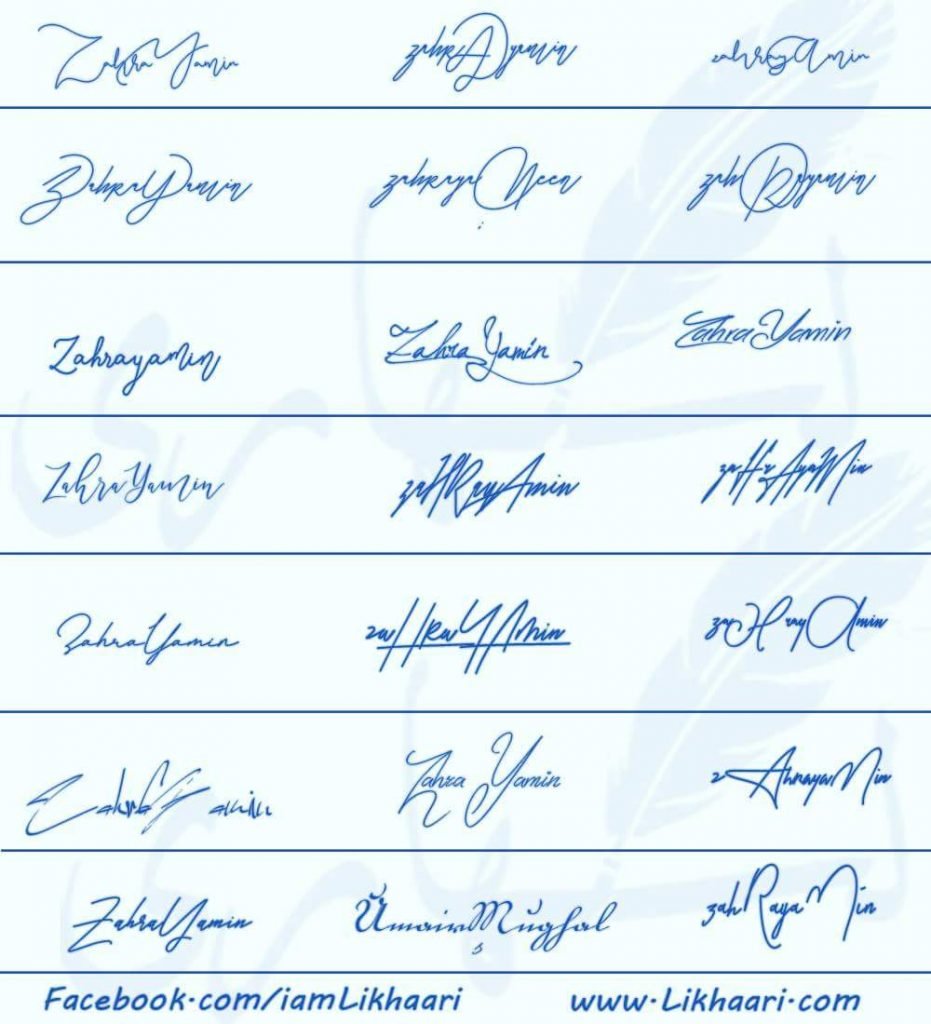 ZahraYamin zahRAyamin zahrayAmin
ZahRaYamin zahrayaMeen zahRayamin
Zahrayamin Zahra Yamin Zahra Yamin
ZahraYamin zaHRayAmin zaHrAyaMin
ZahraYamin zaHRaYAmin zaHrayAmin
ZahraYamin Zahra Yamin zAhrayaMin
ZahraYamin Umair Mughal zahRayaMin
Facebook.com/iamLikhaari www.Likhaari.com